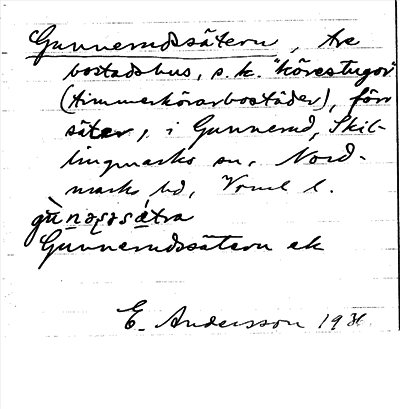 Gunnerudssätern, tre
bostadshus, s. k. "körestugor"
(timmerkörarbostäder), förr
säter, i Gunnerud, Skil-
lingmarks sn, Nord-
marks hd, Vrml l.
Gunnerudssätern ek
E. Andersson 193